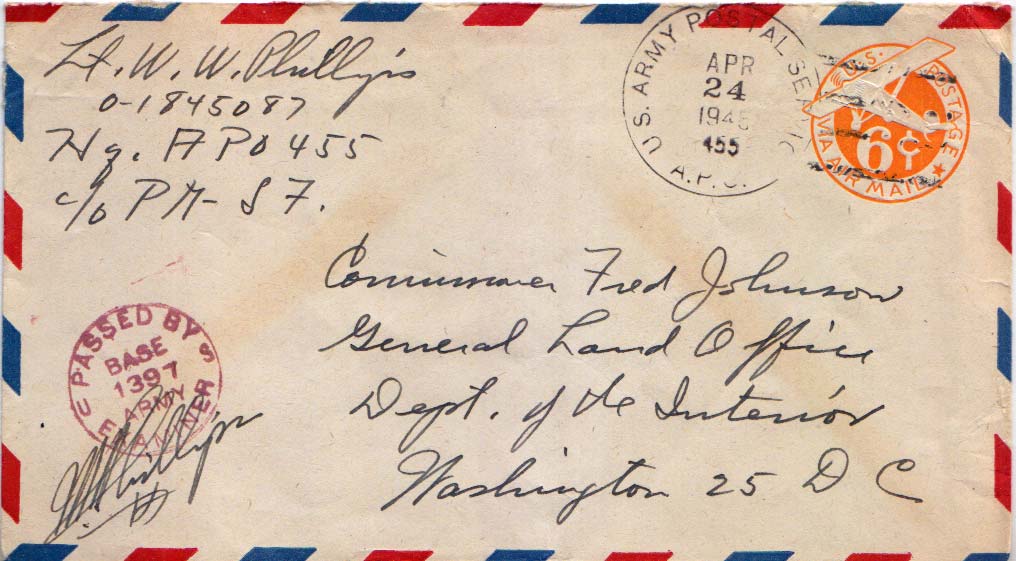 Lt. W. W. Phillips
0-1845087
Hq. APO 455
c/o PM - S F.
U.S. ARMY POSTAL SERVICE
APR
24
1945
455
A.P.O.
U.S. POSTAGE
6¢
VIA AIR MAIL
Commissioner Fred Johnson
General Land Office
Dept. of the Interior
Washington 25 D C
PASSED BY
BASE
1397
ARMY
EXAMINER
WW Phillips